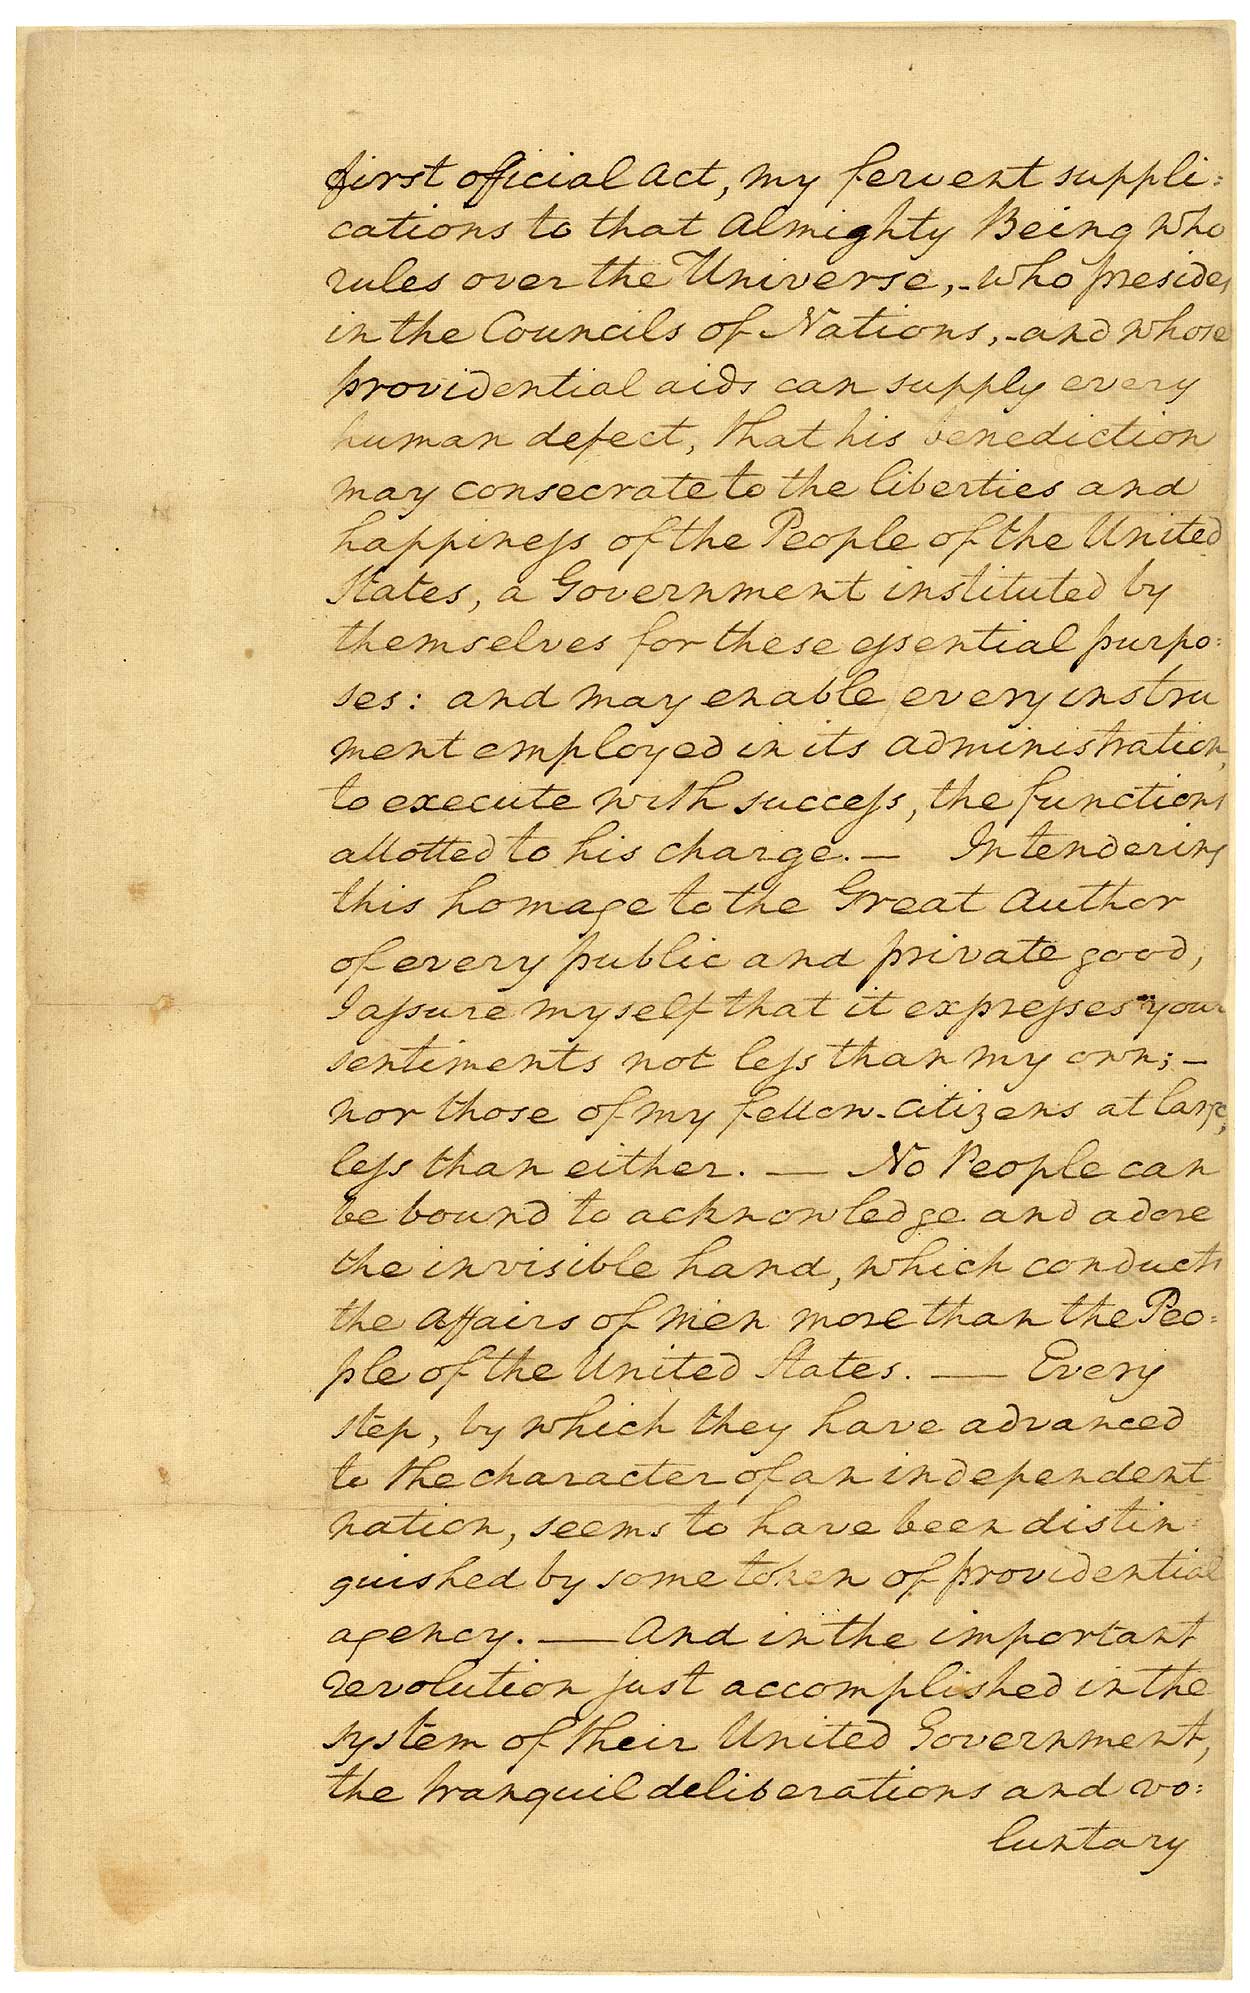 first official Act, my fervent suppli=
cations to that Almighty Being who
rules over the Universe,-who presides
in the Councils of Nations,-and whose
providential aids can supply every
human defect, that his benediction
may consecrate to the liberties and
happiness of the People of the United
States, a Government instituted by
themselves for these essential purpo=
ses: and may enable every instru
ment employed in its administration,
to execute with success, the functions
allotted to his charge.— In tendering
this homage to the Great Author
of every public and private good,
I assure myself that it expresses your
sentiments not less than my own;—
nor those of my fellow-citizens at large,
less than either. — No People can
be bound to acknowledge and adore
the invisible hand, which conducts
the Affairs of men more than the Peo=
ple of the United States. — Every
step, by which they have advanced
to the character of an independent
nation, seems to have been distin=
guished by some token of providential
agency. — And in the important
revolution just accomplished in the
system of their United Government,
the tranquil deliberations and vo=
luntary